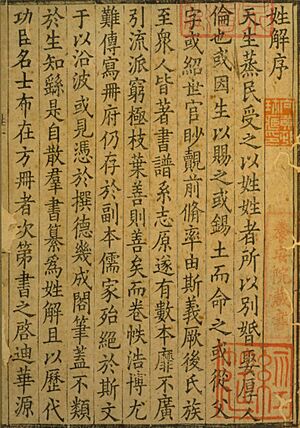 姓解序
天生蒸民受之以姓姓者所以別婚娶厚人
倫也或因生以賜之或錫土而命之或從人
字或紹世官眇覿前脩率由斯義厥後氏族
至衆人皆著書譜系志原遂有數本靡不廣
引流派窮極枝葉善則善矣而卷帙浩博尤
難傳寫冊府仍存於副本儒家殆絕於斯文
于以沿波或見憑於撰德幾成閣筆蓋不類
於生知繇是自散羣書纂爲姓解且以歷代
功臣名士布在方冊者次第書之啓迪華源